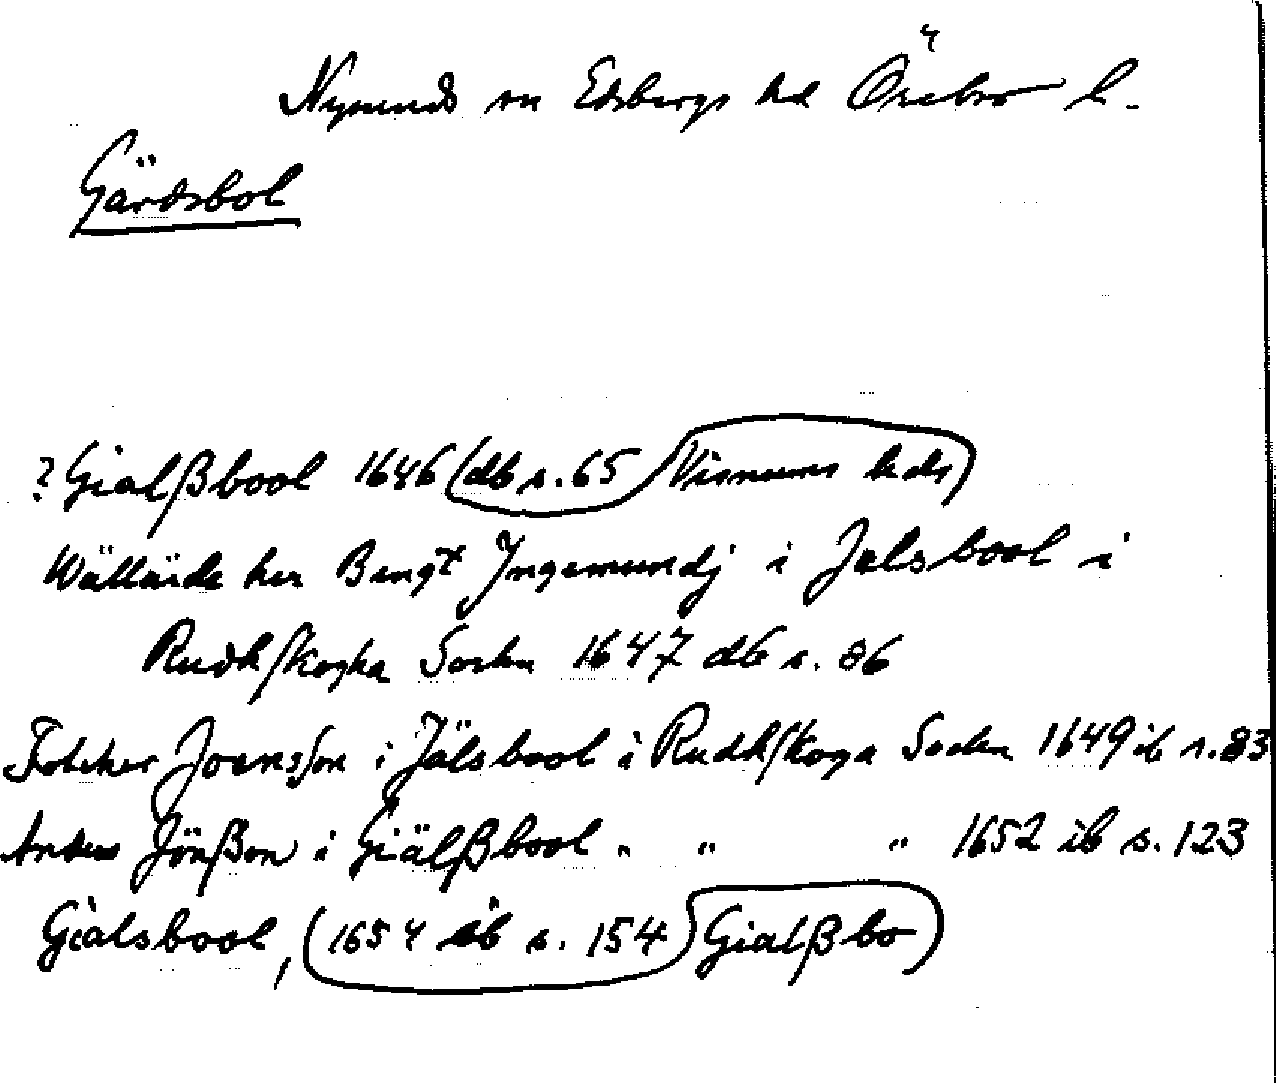 4
Nysunds sn Edsbergs hd Örebro l.
Gärdsbol
? Gialßbool 1646 (db s. 65 Visnums hds)
Wällärde her Bengt Jngemundj i Jalsbool i
Rudhskogha Sochn 1647 db s. 86
Joensson i Jälsbool i Rudhskoga Sochn 1649 ib s. 83
Anders Jönßon i Giälßbool „ „ „ 1652 ib s. 123
Gialsbool, (1654 ib s. 154 Gialßbo)